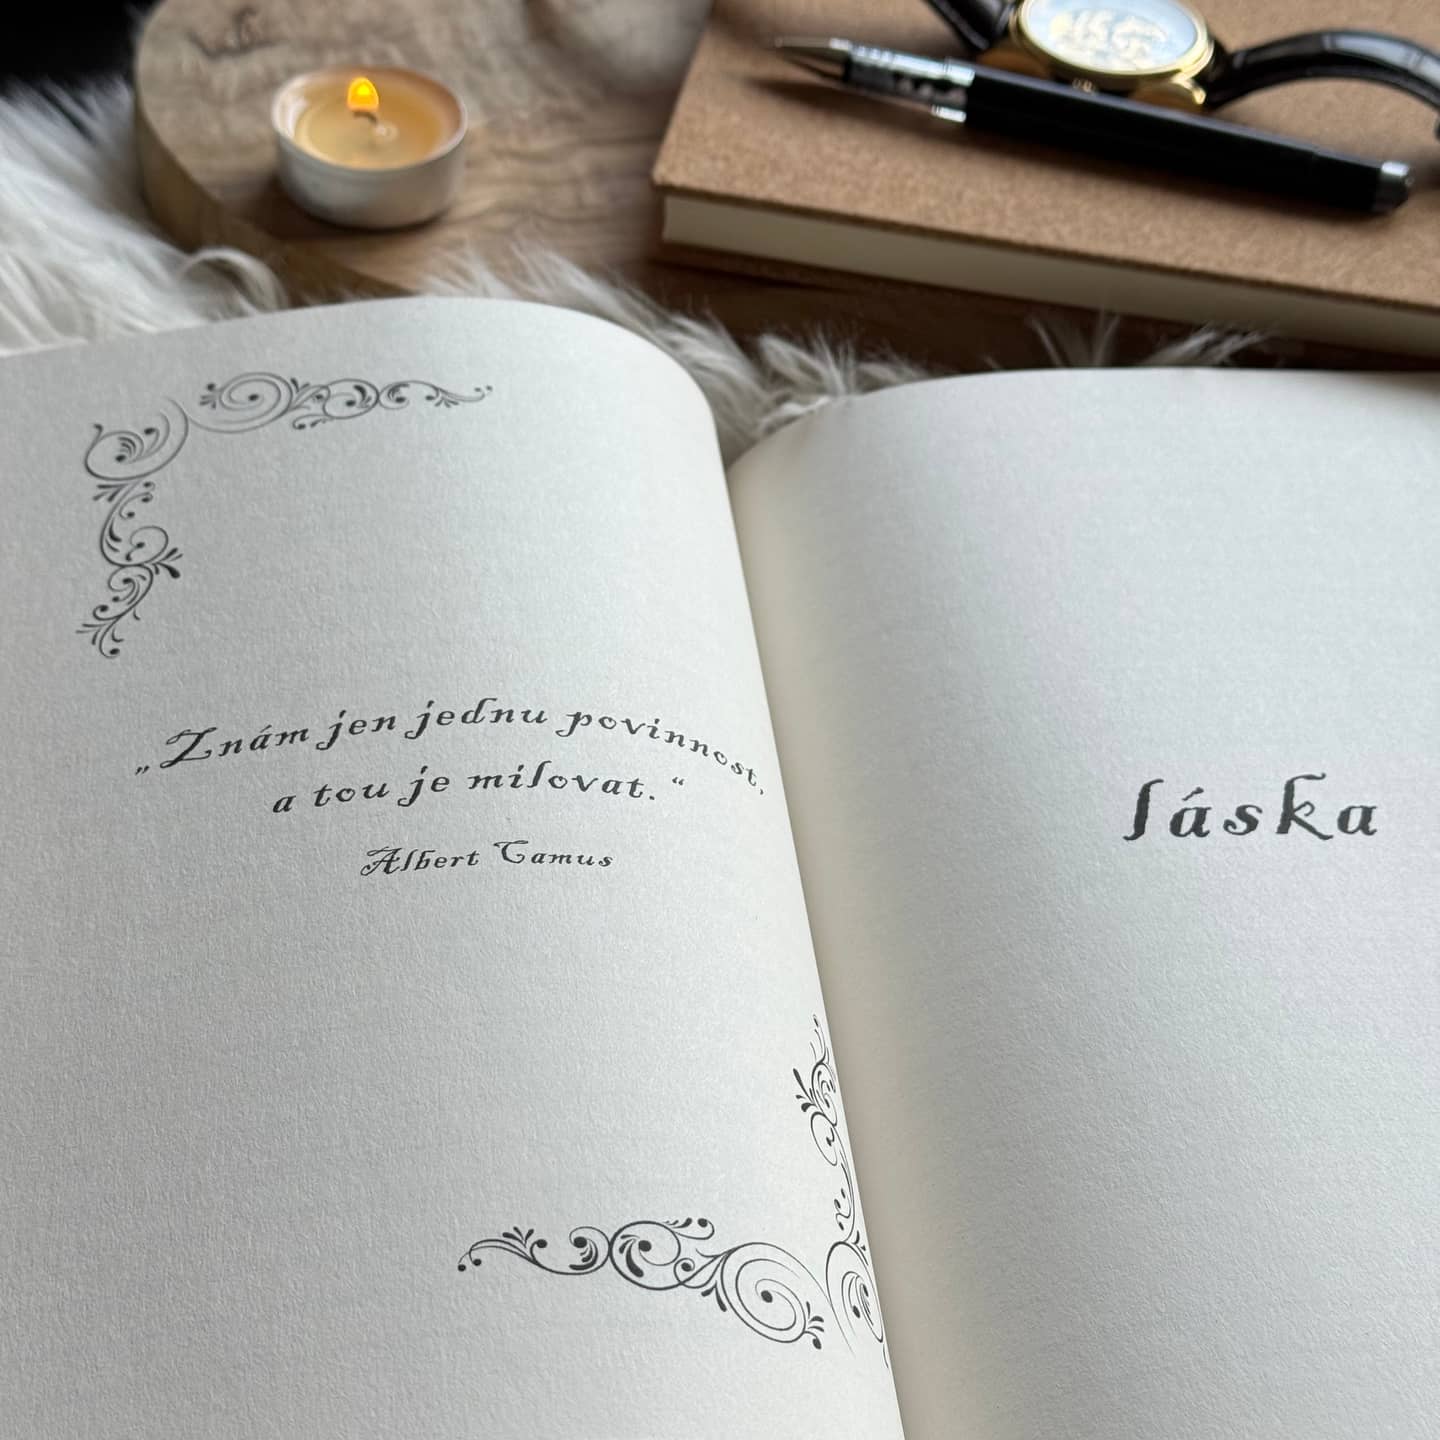 „Znám jen jednu povinnost,
a tou je milovat.“
Albert Camus
láska